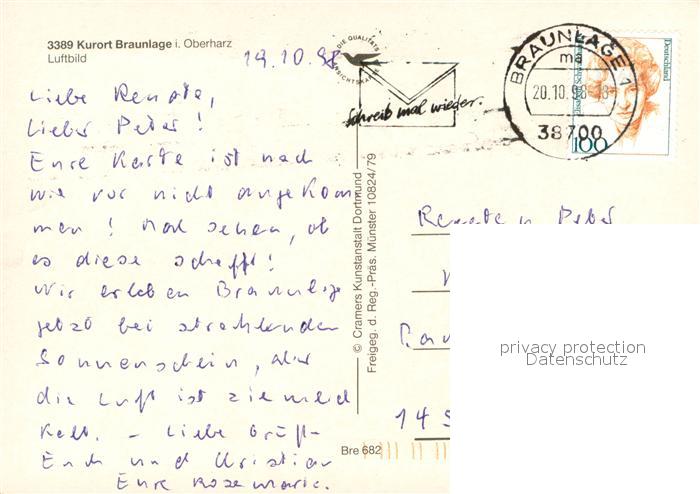 3389 Kurort Braunlage i. Oberharz
Luftbild
19.10.98
Liebe Renate,
Lieber Peter!
Eure Karte ist nach
wie vor nicht angekom
men! Mal sehen, ob
es diese schafft!
Wir erleben Braunlage
jetzt bei strahlendem
Sonnenschein, aber
die Luft ist ziemlich
kalt. – Liebe Grüße
Euch und Christian
Eure Rosemarie.
DIE QUALITÄTS
ANSICHTSKARTE
Schreib mal wieder.
BRAUNLAGE 1
ma
20.10.98-18
38700
Deutschland
100
© Cramers Kunstanstalt Dortmund
Freigeg. d. Reg.-Präs. Münster 10824/79
Bre 682
Renate u. Peter
14
privacy protection
Datenschutz